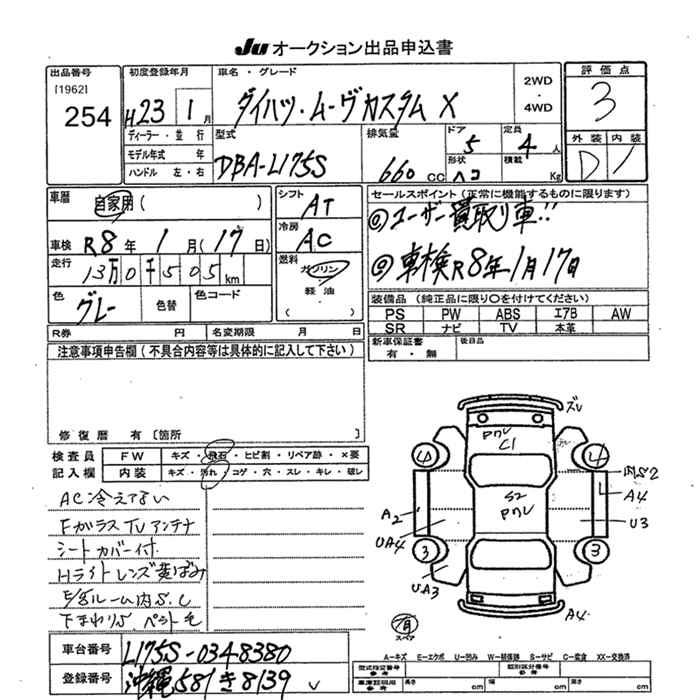 Ju オークション出品申込書
出品番号
[1962]
254
初度登録年月
H23年 1月
ディーラー・並行
モデル年式 年
ハンドル 左・右
車名・グレード
ダイハツ・ムーヴカスタム X
2WD
・
4WD
型式
DBA-L175S
排気量
660 CC
ドア
5
形状
ハコ
定員
4人
積載
Kg
評価点
3
外装 内装
D 1
車歴
自家用 ( )
車検 R8年 1月(17日)
走行
13万0千505km
色
グレー
色替
色コード
シフト
AT
冷房
AC
燃料
ガソリン
軽油
( )
R券 円
名変期限 月 日
セールスポイント(正常に機能するものに限ります)
◎ユーザー買取り車!!
◎車検R8年1月17日
装備品(純正品に限り○を付けてください)
PS PW ABS エアB AW
SR ナビ TV 本革
新車保証書
有・無
後日品
注意事項申告欄(不具合内容等は具体的に記入して下さい)
修復歴 有〔箇所 〕
検査員 FW キズ・飛石・ヒビ割・リペア跡・×要
記入欄 内装 キズ・汚れ・コゲ・穴・スレ・キレ・破レ
AC冷えてない
Fガラス TV アンテナ
シートカバー付
Hライトレンズ黄ばみ
E/gルーム内S.C
下まわりS.ペイント色
ズレ
PアV
C1
4
4
A4
A2
S2
PアV
U3
UA4
3
3
UA3
有
スペア
A4
A−キズ E−エクボ U−凹み W−補修跡 S−サビ C−腐食 XX−交換済
車台番号 L175S-0348380
登録番号 沖縄581き8139
型式指定番号
参考
類別区分番号
参考
車庫証明用
参考
長さ cm
幅 cm
高さ cm